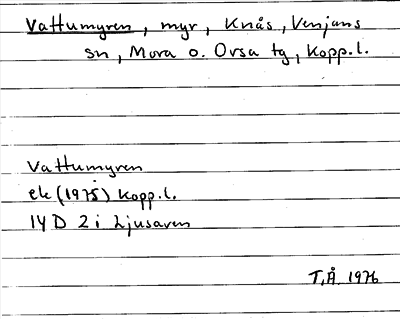 Vattumyren, myr, Knås, Venjans
sn, Mora o. Orsa tg, Kopp.l.
Vattumyren
ek (1975) Kopp.l.
14 D 2 i Ljusaren
T.Å. 1976